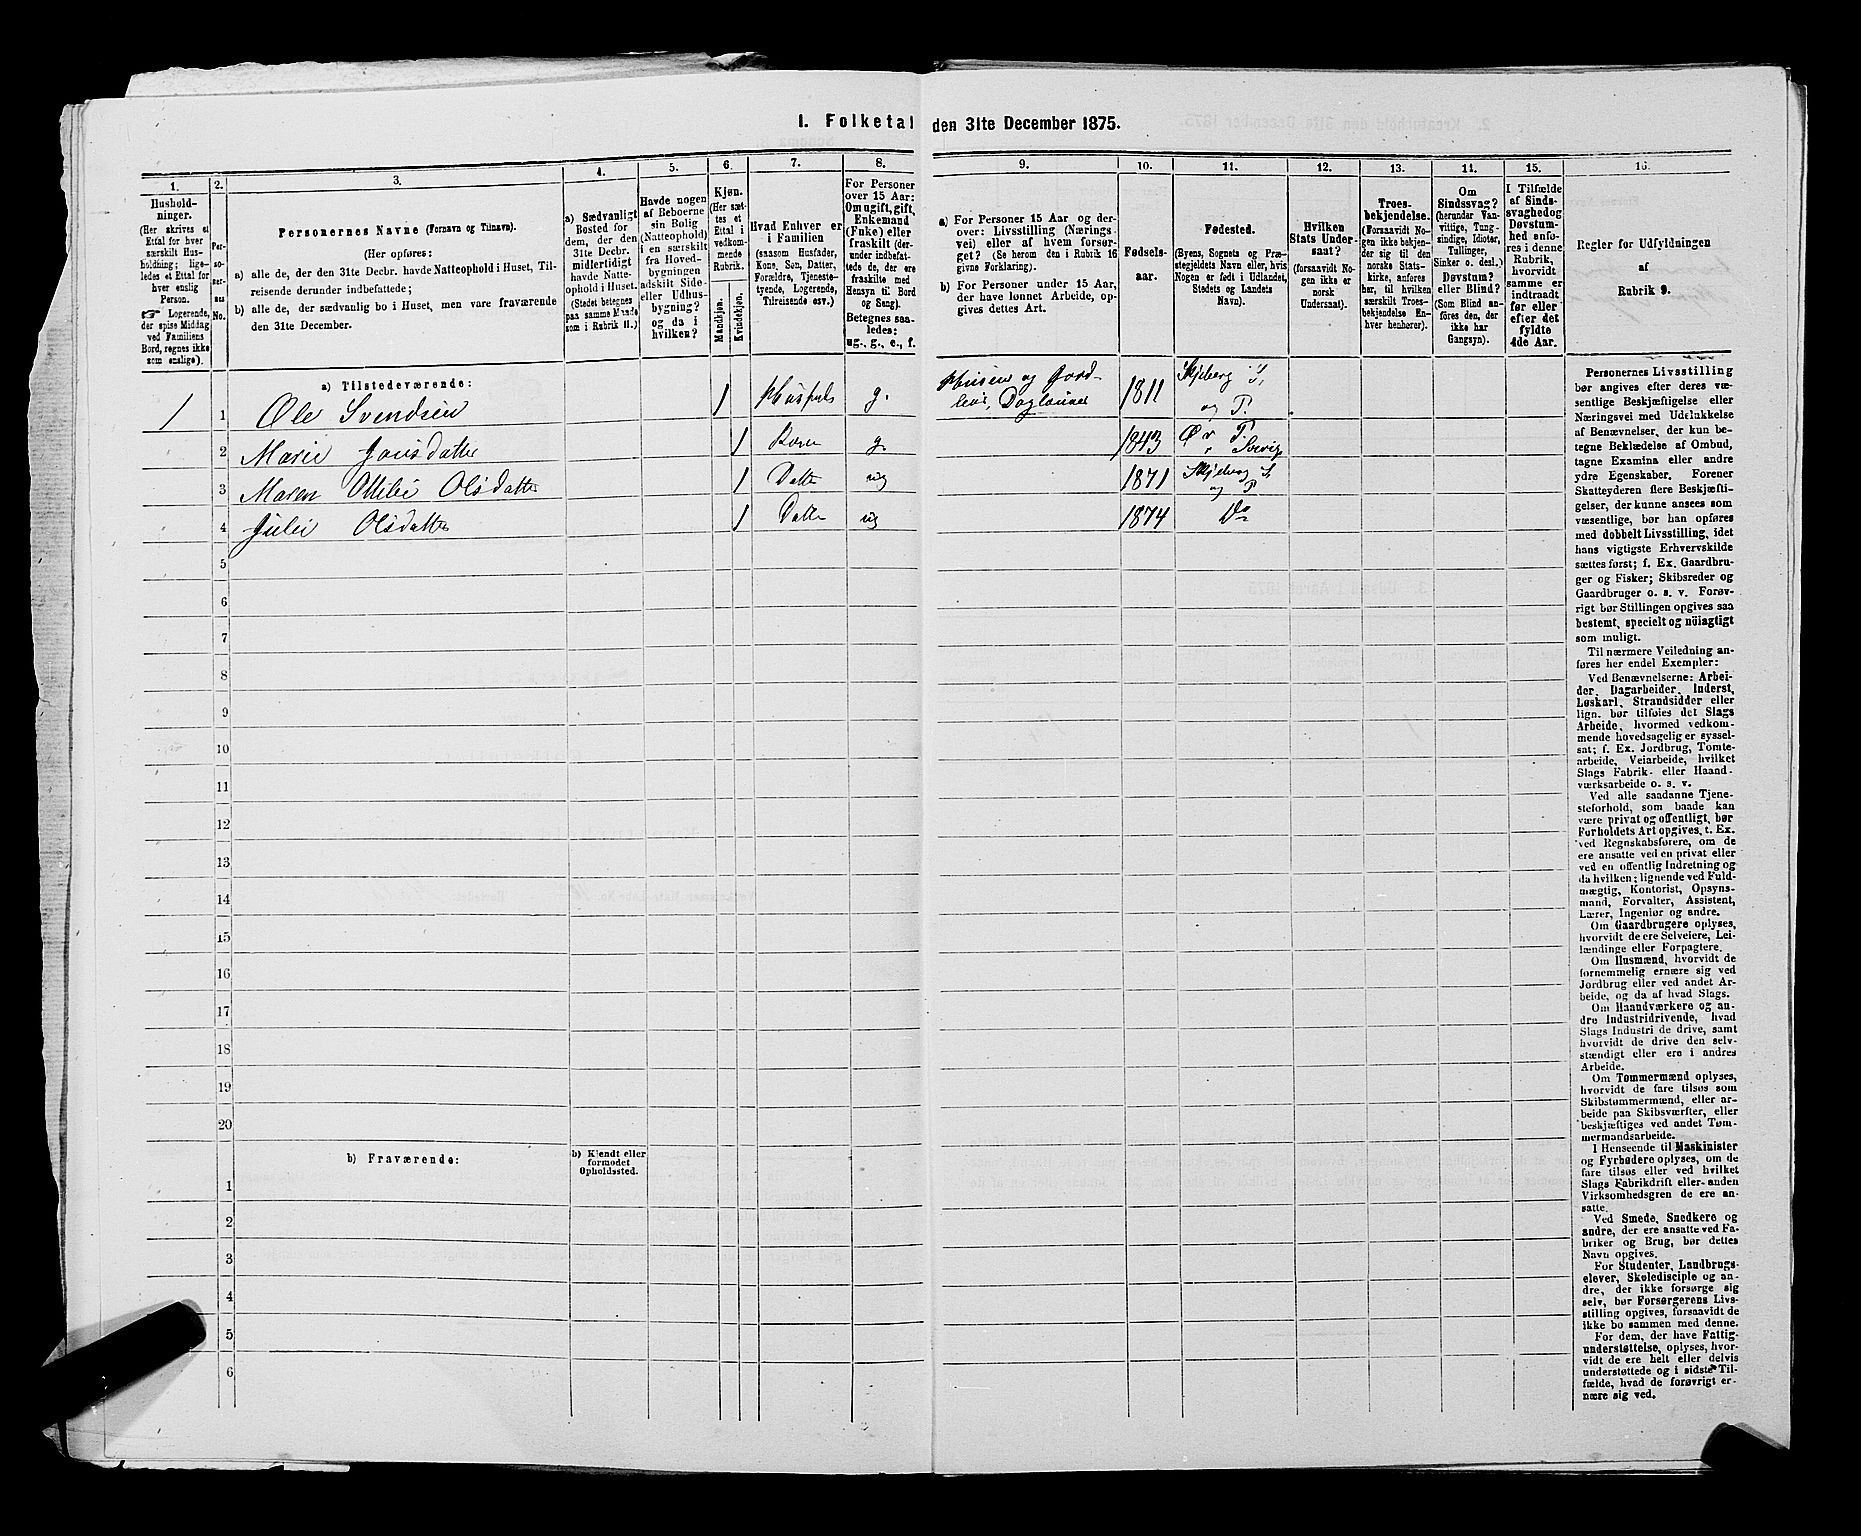 I. Folketal den 31te December 1875.
1. 2. 3. 4. 5. 6. 7. 8. 9. 10. 11. 12. 13. 14. 15. 16.
Hushold-
ninger.
(Her skrives et
Ettal for hver
særskilt Hus-
holdning; lige-
ledes et Ettal for
hver enslig
Person.
☞ Logerende,
der spise Middag
ved Familiens
Bord, regnes ikke
som enslige).
Per-
so-
ner-
nes
No.
Personernes Navne (Fornavn og Tilnavn).
(Her opføres:
a) alle de, der den 31te Decbr. havde Natteophold i Huset, Til-
reisende derunder indbefattede;
b) alle de, der sædvanlig bo i Huset, men vare fraværende
den 31te December.
a) Sædvanligt
Bosted for
dem, der den
31te Decbr.
midlertidigt
havde Natte-
ophold i Huset.
(Stedet betegnes
paa samme Maade
som i Rubrik 11.)
Havde nogen
af Beboerne
sin Bolig
(Natteophold)
i en særskilt
fra Hoved-
bygningen
adskilt Side-
eller Udhus-
bygning?
og da i
hvilken?
Kjøn.
(Her sæt-
tes et
Ettal i
vedkom-
mende
Rubrik.
Mandkjøn.
Kvindekjøn.
Hvad Enhver er
i Familien
(saasom Husfader,
Kone, Søn, Datter,
Forældre, Tjeneste-
tyende, Logerende,
Tilreisende osv.)
For Personer
over 15 Aar:
Om ugift, gift,
Enkemand
(Enke) eller
fraskilt (der-
under indbefat-
tede de, der ere
fraskilte med
Hensyn til Bord
og Seng).
Betegnes saa-
ledes:
ug., g., e., f.
a) For Personer 15 Aar og der-
over: Livsstilling (Nærings-
vei) eller af hvem forsør-
get? (Se herom den i Rubrik 16
givne Forklaring).
b) For Personer under 15 Aar,
der have lønnet Arbeide, op-
gives dettes Art.
Fødsels-
aar.
Fødested.
(Byens, Sognets og Præ-
stegjeldets Navn eller, hvis
Nogen er født i Udlandet,
Stedets og Landets
Navn).
Hvilken
Stats Under-
saat?
(forsaavidt No-
gen ikke er
norsk
Undersaat).
Troes-
bekjendelse.
(Forsaavidt No-
gen ikke bekjen-
der sig til den
norske Stats-
kirke, anføres
her, til hvilken
særskilt Troes-
bekjendelse En-
hver henhører).
Om
Sindssvag?
(herundar Van-
vittige, Tung-
sindige, Idioter,
Tullinger,
Sinker o. desl.)
Døvstum?
eller Blind?
(Som Blind an-
føres den, der
ikke har
Gangsyn).
I Tilfælde
af Sinds-
svaghed og
Døvstum-
hed anfø-
res i denne
Rubrik,
hvorvidt
samme er
indtraadt
før eller
efter det
fyldte
4de Aar.
Regler for Udfyldningen
af
Rubrik 9.
a) Tilstedeværende:
1 1 Ole Svendsen 1 Husfader g. Huseier og Jord- 1811 Skjeberg S.
og P.
2 Marie Jonsdatter 1 Kone g. 1843 P. Sverige
3 Maren Otilie Olsdatter 1 Datter ug 1871 Skjeberg S
og P.
4 Julie Olsdatter 1 Datter ug 1874 Do
5
6
7
8
9
10
11
12
13
14
15
16
17
18
19
20
b) Fraværende:
b) Kjendt eller
formodet
Opholdssted.
1
2
3
4
5
6
Personernes Livsstilling
bør angives efter deres væ-
sentlige Beskjæftigelse eller
Næringsvei med Udelukkelse
af Benævnelser, der kun be-
tegne Beklædelse af Ombud,
tagne Examina eller andre
ydre Egenskaber. Forener
Skatteyderen flere Beskjæfti-
gelser, der kunne ansees som
væsentlige, bør han opføres
med dobbelt Livsstilling, idet
hans vigtigste Erhvervskilde
sættes først; f. Ex. Gaardbru-
ger og Fisker; Skibsreder og
Gaardbruger o. s. v. Forøv-
rigt bør Stillingen opgives saa
bestemt, specielt og nöiagtigt
som muligt.
Til nærmere Veiledning an-
føres her endel Exempler:
Ved Benævnelserne: Arbei-
der, Dagarbeider, Inderst,
Løskarl, Strandsidder eller
lign. bør tilføies det Slags
Arbeide, hvormed vedkom-
mende hovedsagelig er syssel-
sat; f. Ex. Jordbrug, Tomte-
arbeide, Veiarbeide, hvilket
Slags Fabrik- eller Haand-
værksarbeide o. s. v.
Ved alle saadanne Tjene-
steforhold, som baade kan
være privat og offentligt, bør
Forholdets Art opgives, t. Ex.
ved Regnskabsførere, om de
ere ansatte ved en privat eller
ved en offentlig Indretning og
da hvilken; lignende ved Fuld-
mægtig, Kontorist, Opsyns-
mand, Forvalter, Assistent,
Lærer, Ingeniør og andre.
Om Gaardbrugere oplyses,
hvorvidt de ere Selveiere, Lei-
lændinge eller Forpagtere.
Om Husmænd, hvorvidt de
fornemmelig ernære sig ved
Jordbrug eller ved andet Ar-
beide, og da af hvad Slags.
Om Haandværkere og an-
dre Industridrivende, hvad
Slags Industri de drive, samt
hvorvidt de drive den selv-
stændigt eller ere i andres
Arbeide.
Om Tømmermænd oplyses,
hvorvidt de fare tilsøs som
Skibstømmermænd, eller ar-
beide paa Skibsværfter, eller
beskjæftiges ved andet Tøm-
mermandsarbeide.
I Henseende til Maskinister
og Fyrbødere oplyses, om de
fare tilsøs eller ved hvilket
Slags Fabrikdrift eller anden
Virksomhedsgren de ere an-
satte.
Ved Smede, Snedkere og
andre, der ere ansatte ved Fa-
briker og Brug, bør dettes
Navn opgives.
For Studenter, Landbrugs-
elever, Skoledisciple og an-
dre, der ikke forsørge sig
selv, bør Forsørgerens Livs-
stilling opgives, forsaavidt de
ikke bo sammen med denne.
For dem, der have Fattig-
understøttelse, oplyses, hvor-
vidt de ere helt eller delvis
understøttede og i sidste Til-
fælde, hvad de forøvrigt er-
nære sig ved.